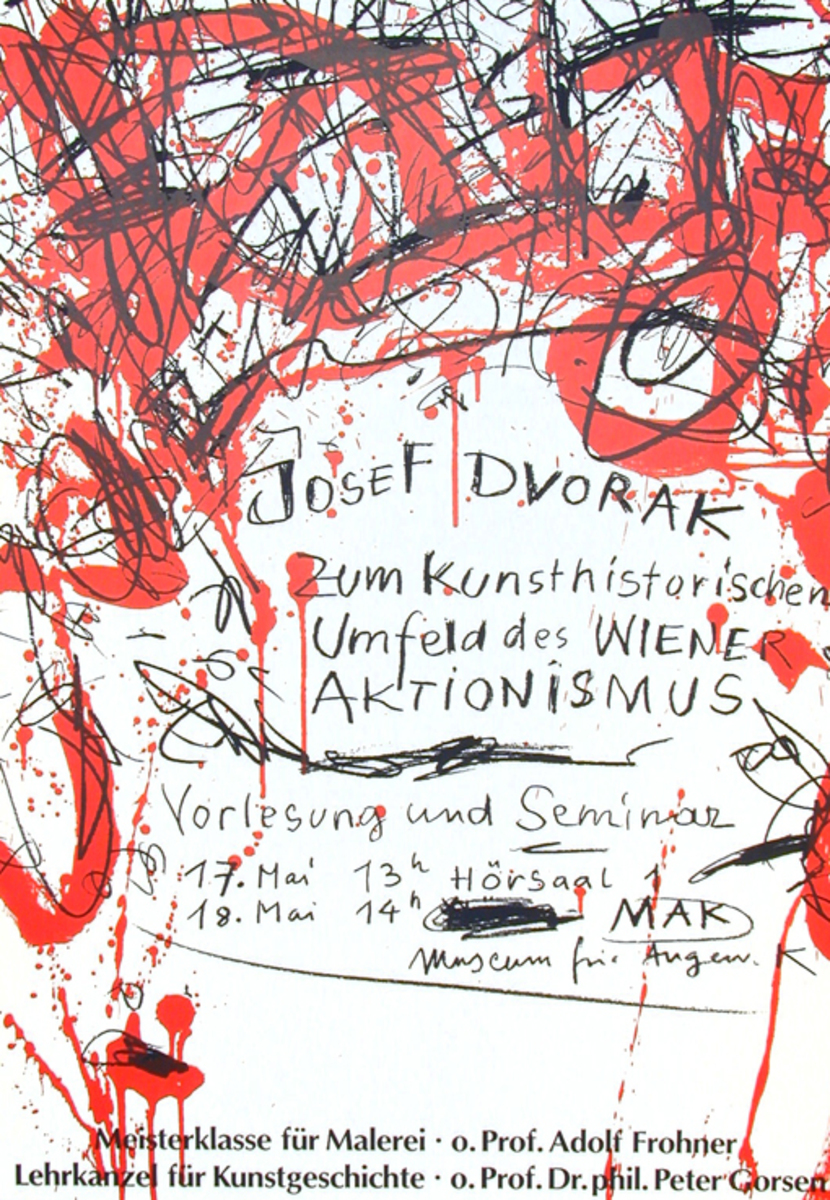 JOSEF DVORAK
Zum Kunsthistorischen
Umfeld des WIENER
AKTIONISMUS
Vorlesung und Seminar
17. Mai 13h Hörsaal 1
18. Mai 14h MAK
Museum für Angew. K
Meisterklasse für Malerei · o. Prof. Adolf Frohner
Lehrkanzel für Kunstgeschichte · o. Prof. Dr. phil. Peter Gorsen